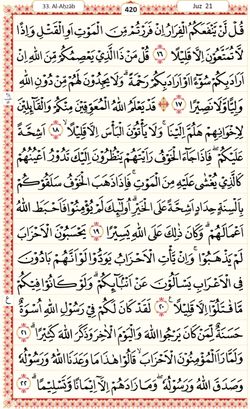 33. Al-Aḥzāb 420 Juz 21
قُلْ لَّنْ يَّنْفَعَكُمُ الْفِرَارُ اِنْ فَرَرْتُمْ مِّنَ الْمَوْتِ اَوِ الْقَتْلِ وَاِذًا
لَّا تُمَتَّعُوْنَ اِلَّا قَلِيْلًا ١٦ قُلْ مَنْ ذَا الَّذِيْ يَعْصِمُكُمْ مِّنَ اللّٰهِ اِنْ
اَرَادَ بِكُمْ سُوْٓءًا اَوْ اَرَادَ بِكُمْ رَحْمَةً ۗ وَلَا يَجِدُوْنَ لَهُمْ مِّنْ دُوْنِ اللّٰهِ
وَلِيًّا وَّلَا نَصِيْرًا ١٧ قَدْ يَعْلَمُ اللّٰهُ الْمُعَوِّقِيْنَ مِنْكُمْ وَالْقَآىِٕلِيْنَ
لِاِخْوَانِهِمْ هَلُمَّ اِلَيْنَا ۚ وَلَا يَأْتُوْنَ الْبَأْسَ اِلَّا قَلِيْلًا ١٨ اَشِحَّةً
عَلَيْكُمْ ۖ فَاِذَا جَآءَ الْخَوْفُ رَاَيْتَهُمْ يَنْظُرُوْنَ اِلَيْكَ تَدُوْرُ اَعْيُنُهُمْ
كَالَّذِيْ يُغْشٰى عَلَيْهِ مِنَ الْمَوْتِ ۚ فَاِذَا ذَهَبَ الْخَوْفُ سَلَقُوْكُمْ
بِاَلْسِنَةٍ حِدَادٍ اَشِحَّةً عَلَى الْخَيْرِ ۗ اُولٰٓىِٕكَ لَمْ يُؤْمِنُوْا فَاَحْبَطَ اللّٰهُ
اَعْمَالَهُمْ ۗ وَكَانَ ذٰلِكَ عَلَى اللّٰهِ يَسِيْرًا ١٩ يَحْسَبُوْنَ الْاَحْزَابَ
لَمْ يَذْهَبُوْا ۚ وَاِنْ يَّأْتِ الْاَحْزَابُ يَوَدُّوْا لَوْ اَنَّهُمْ بَادُوْنَ
فِى الْاَعْرَابِ يَسْاَلُوْنَ عَنْ اَنْۢبَآىِٕكُمْ ۗ وَلَوْ كَانُوْا فِيْكُمْ
مَّا قٰتَلُوْٓا اِلَّا قَلِيْلًا ٢٠ لَقَدْ كَانَ لَكُمْ فِيْ رَسُوْلِ اللّٰهِ اُسْوَةٌ
حَسَنَةٌ لِّمَنْ كَانَ يَرْجُوا اللّٰهَ وَالْيَوْمَ الْاٰخِرَ وَذَكَرَ اللّٰهَ كَثِيْرًا ٢١
وَلَمَّا رَاَ الْمُؤْمِنُوْنَ الْاَحْزَابَ ۙ قَالُوْا هٰذَا مَا وَعَدَنَا اللّٰهُ وَرَسُوْلُهٗ
وَصَدَقَ اللّٰهُ وَرَسُوْلُهٗ ۖ وَمَا زَادَهُمْ اِلَّآ اِيْمَانًا وَّتَسْلِيْمًا ٢٢